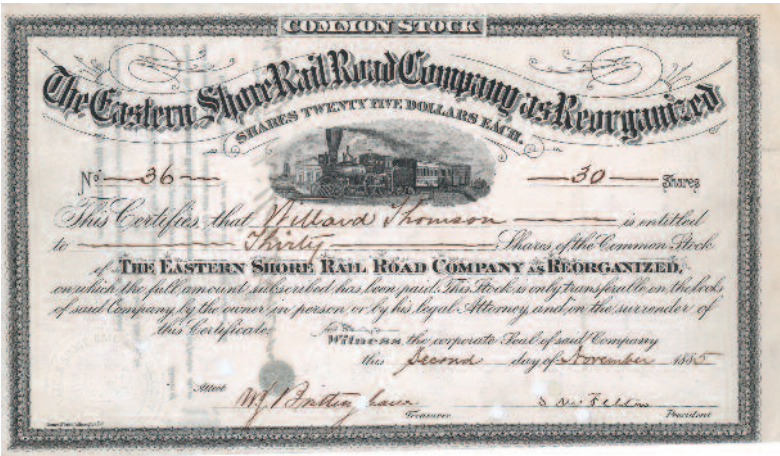 COMMON STOCK
The Eastern Shore Rail Road Company as Reorganized
SHARES TWENTY FIVE DOLLARS EACH.
No. 36
30 Shares
This Certifies, that Willard Thomson is entitled
to Thirty Shares of the Common Stock
of THE EASTERN SHORE RAIL ROAD COMPANY AS REORGANIZED,
on which the full amount subscribed has been paid. This Stock is only transferable on the books
of said Company by the owner in person or by his legal Attorney, and on the surrender of
this Certificate.
Witness, the corporate Seal of said Company
this Second day of November 1885
Attest
Treasurer
President